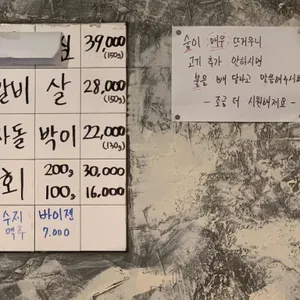 심 39,000
(150g)
갈비 살 28,000
(150g)
차돌 박이 22,000
(130g)
회 200g 30,000
100g 16,000
수제 바이젠
맥주 7.000
숯이 매우 뜨거우니
고기 추가 안하시면
불을 빼 달라고 말씀해주세요
- 조금 더 시원해져요 -